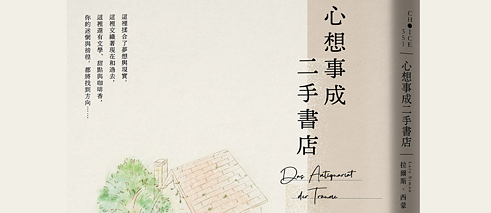 心想事成
二手書店
Das Antiquariat
der Träume
這裡揉合了夢想與現實,
這裡交織著現在和過去,
這裡還有文學、甜點與咖啡香,
你的迷惘與徬徨,都將找到方向……
CHOICE
351
心想事成二手書店
拉爾斯・西蒙